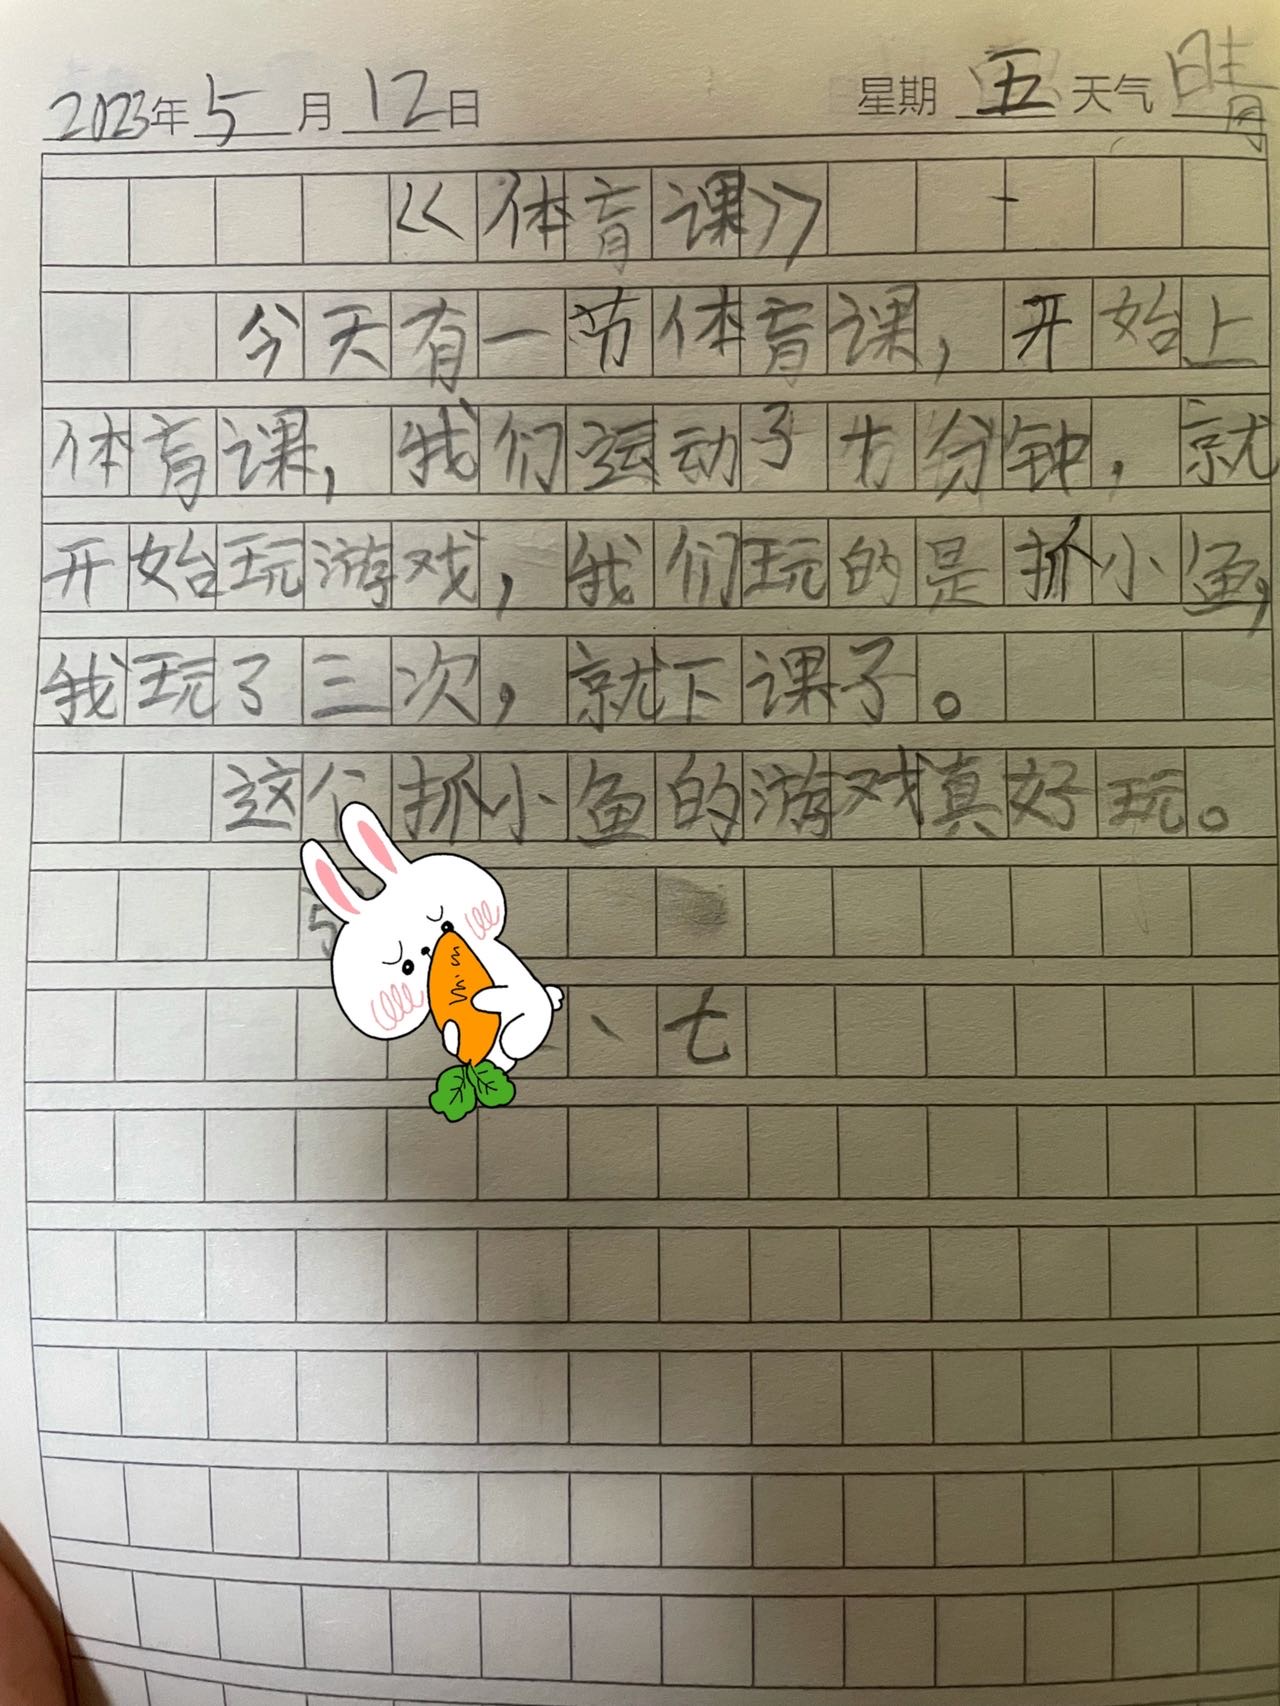 2023年5月12日 星期五 天气晴
《体育课》
今天有一节体育课，开始上
体育课，我们运动了十分钟，就
开始玩游戏，我们玩的是抓小鱼，
我玩了三次，就下课了。
这个抓小鱼的游戏真好玩。
5
、七